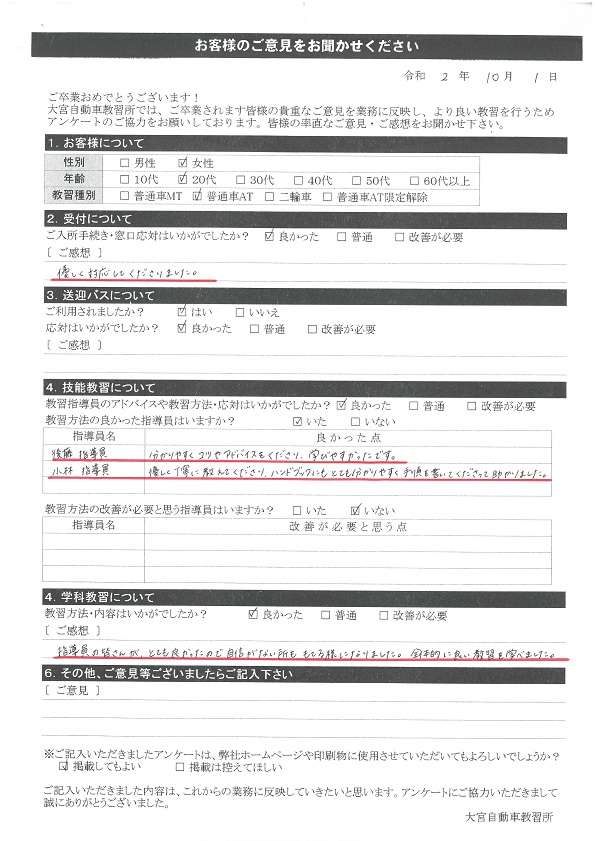 お客様のご意見をお聞かせください
令和 2 年 10 月 1 日
ご卒業おめでとうございます！
大宮自動車教習所では、ご卒業されます皆様の貴重なご意見を業務に反映し、より良い教習を行うため
アンケートのご協力をお願いしております。皆様の率直なご意見・ご感想をお聞かせ下さい。
1. お客様について
性別 □ 男性 ☑ 女性
年齢 □ 10代 ☑ 20代 □ 30代 □ 40代 □ 50代 □ 60代以上
教習種別 □ 普通車MT ☑ 普通車AT □ 二輪車 □ 普通車AT限定解除
2. 受付について
ご入所手続き・窓口応対はいかがでしたか？ ☑ 良かった □ 普通 □ 改善が必要
〔 ご感想 〕
優しく対応してくださりました。
3. 送迎バスについて
ご利用されましたか？ ☑ はい □ いいえ
応対はいかがでしたか？ ☑ 良かった □ 普通 □ 改善が必要
〔 ご感想 〕
4. 技能教習について
教習指導員のアドバイスや教習方法・応対はいかがでしたか？ ☑ 良かった □ 普通 □ 改善が必要
教習方法の良かった指導員はいますか？ ☑ いた □ いない
指導員名 良かった点
後藤 指導員 分かりやすくコツやアドバイスをくださり、学びやすかったです。
小林 指導員 優しく丁寧に教えてくださり、ハンドブックにもとても分かりやすく手順を書いてくださって助かりました。
教習方法の改善が必要と思う指導員はいますか？ □ いた ☑ いない
指導員名 改善が必要と思う点
4. 学科教習について
教習方法・内容はいかがでしたか？ ☑ 良かった □ 普通 □ 改善が必要
〔 ご感想 〕
指導員の皆さんが、とても良かったので自信がない所も もてる様になりました。全体的に良い教習を学べました。
6. その他、ご意見等ございましたらご記入下さい
〔 ご意見 〕
※ご記入いただきましたアンケートは、弊社ホームページや印刷物に使用させていただいてもよろしいでしょうか？
☑ 掲載してもよい □ 掲載は控えてほしい
ご記入いただきました内容は、これからの業務に反映していきたいと思います。アンケートにご協力いただきまして
誠にありがとうございました。
大宮自動車教習所